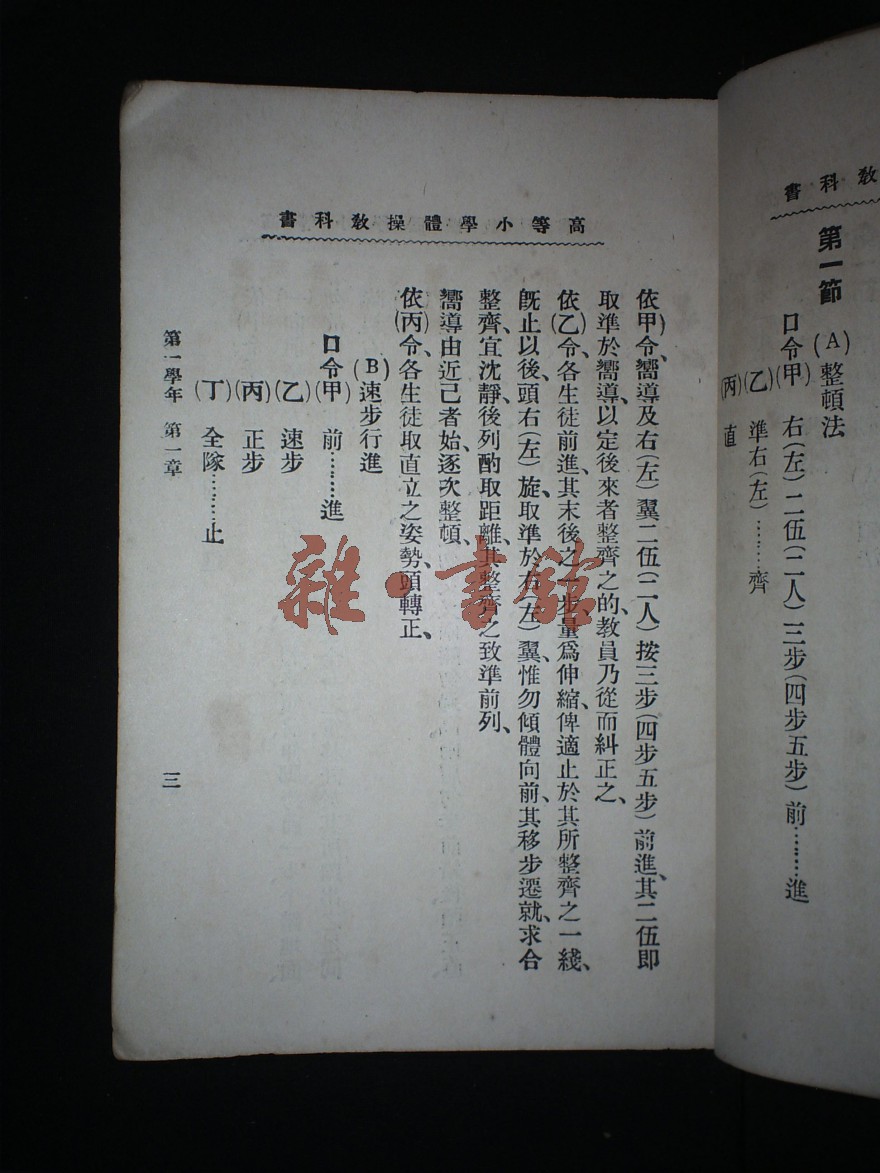 教科書
第一節 (A)整頓法
口令(甲) 右(左)二伍(二人)三步(四步五步)前………進
(乙) 準右(左)………齊
(丙) 直
高等小學體操教科書
依(甲)令、嚮導及右(左)翼二伍(二人)按三步(四步五步)前進、其二伍即
取準於嚮導、以定後來者整齊之的、教員乃從而糾正之、
依(乙)令、各生徒前進、其末後之一步、量爲伸縮、俾適止於其所整齊之一綫、
旣止以後、頭右(左)旋、取準於右(左)翼、惟勿傾體向前、其移步遷就、求合
整齊、宜沈靜、後列酌取距離、其整齊之致準前列、
嚮導由近己者始、逐次整頓、
依(丙)令、各生徒取直立之姿勢、頭轉正、
(B)速步行進
口令(甲) 前………進
(乙) 速步
(丙) 正步
(丁) 全隊………止
第一學年 第一章
三
雜·書館